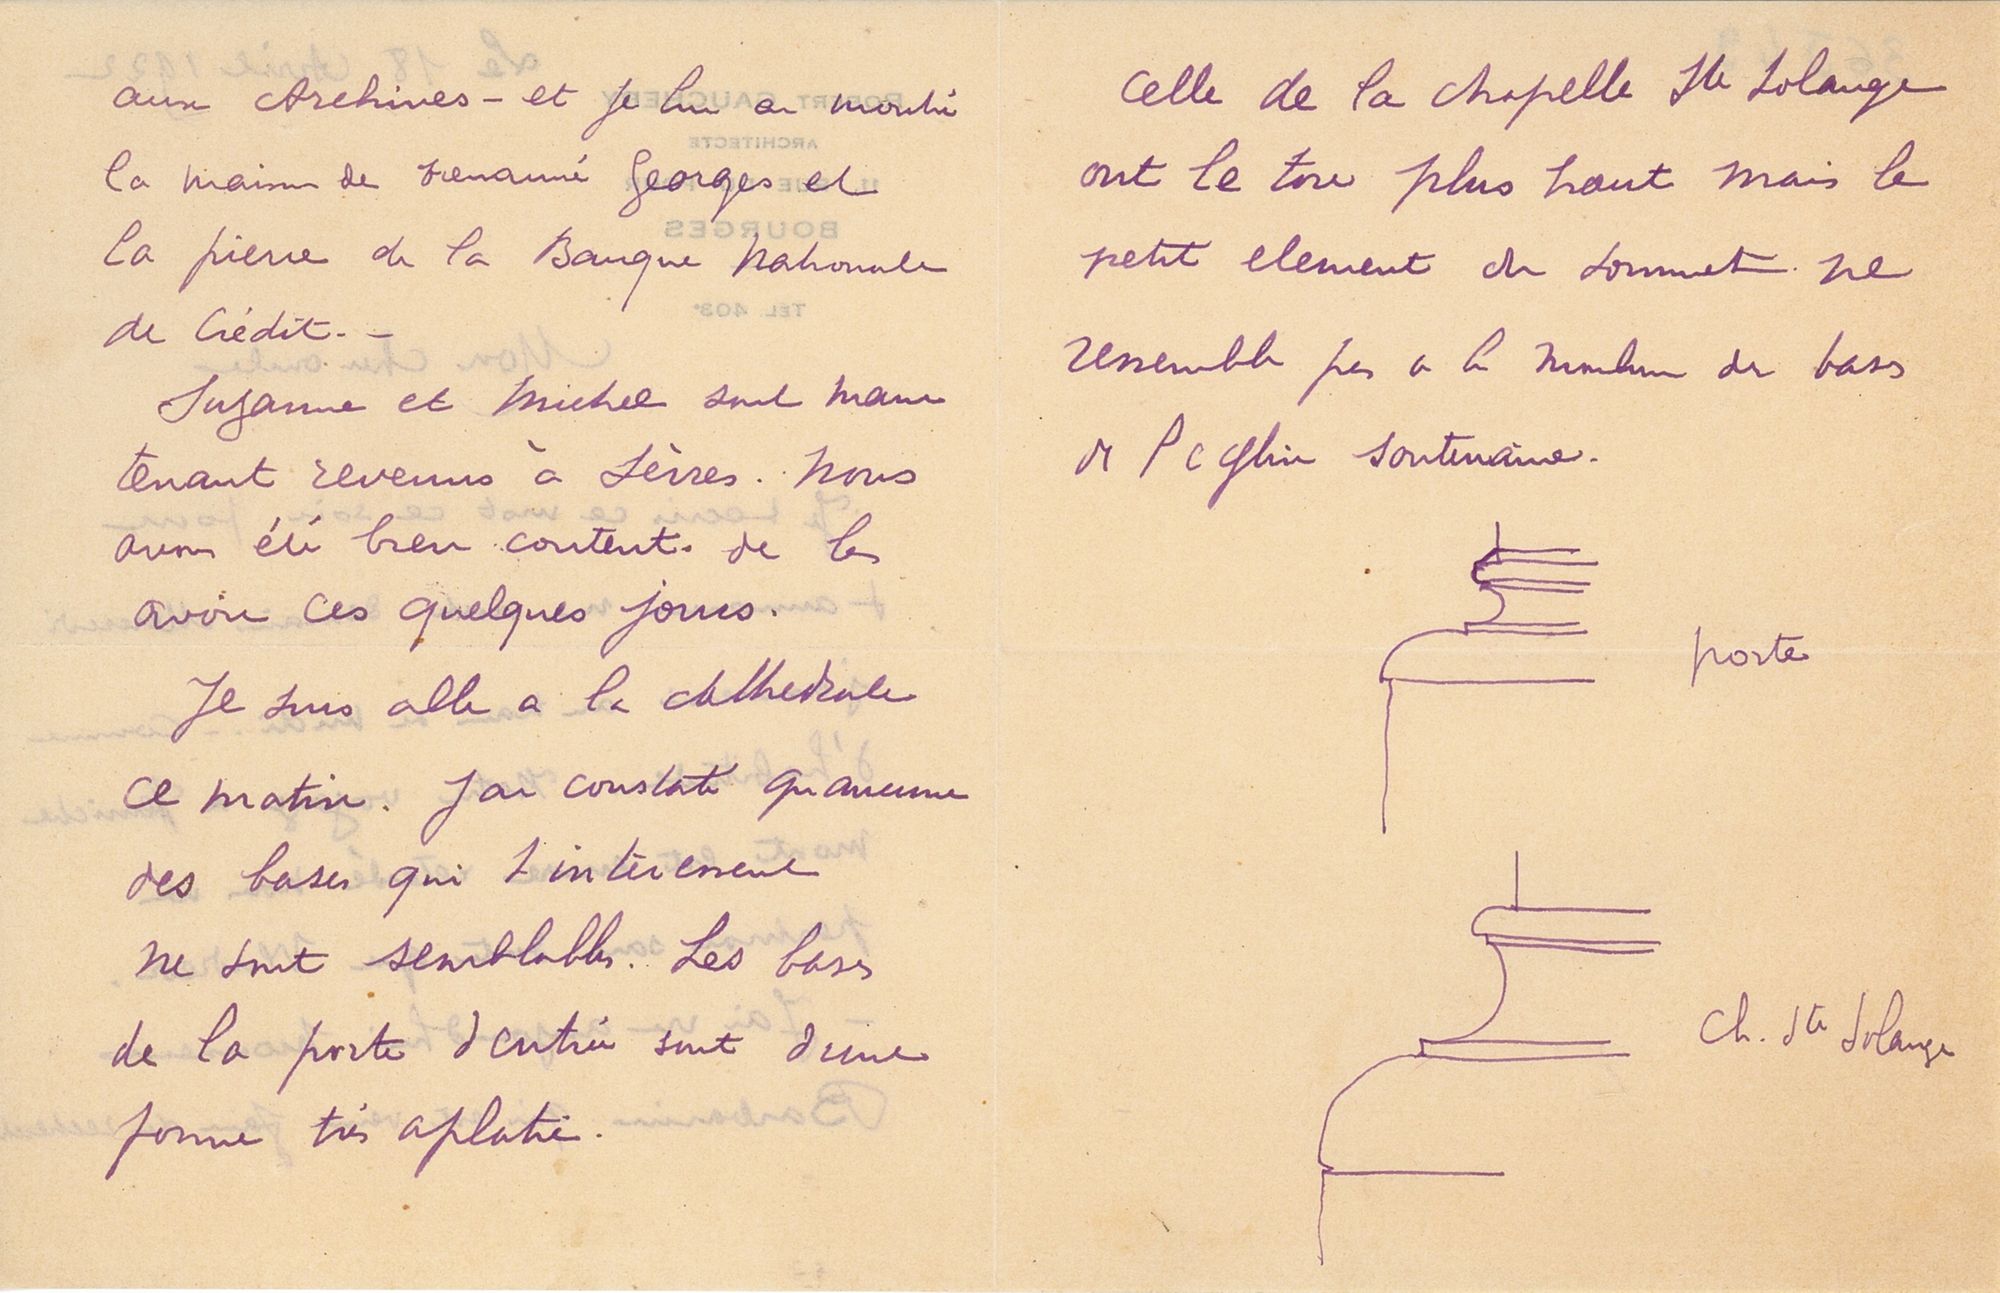 aux Archives - et je lui ai montré
la maison de Georges et
la pierre de la Banque Nationale
de Crédit. -
Suzanne et Michel sont main
tenant revenus à Sèvres. Nous
avons été bien contents de les
avoir ces quelques jours.
Je suis allé a la cathedrale
ce matin. J'ai constaté qu'aucune
des bases qui t'intéressent
ne sont semblables. Les bases
de la porte d'entrée sont d'une
forme très aplatie.
celle de la chapelle Ste Solange
ont le tore plus haut mais le
petit element du sommet ne
ressemble pas a la moulure des bases
de l'eglise souterraine.
porte
Ch. Ste Solange
ROBERT GAUCHERY
ARCHITECTE
BOURGES
TÉL. 403
Le 18 Avril 1922
Mon cher oncle